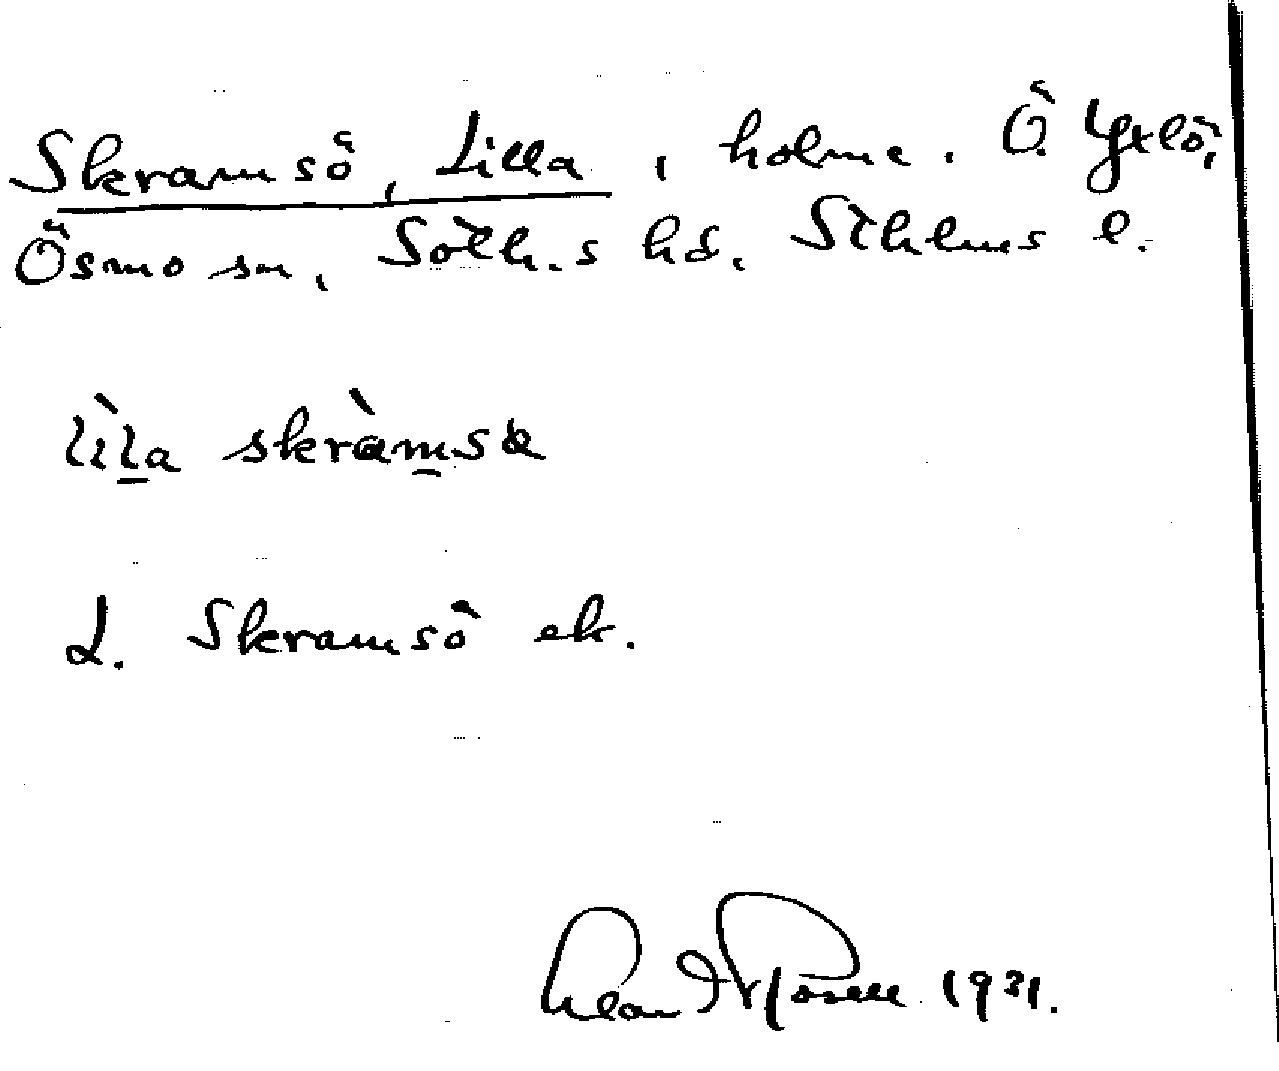 Skramsö, Lilla, holme. Ö. Yxlö,
Ösmo sn, Soth.s hd, Sthlms l.
lìla skràmsa
L. Skramsö ek.
1931.